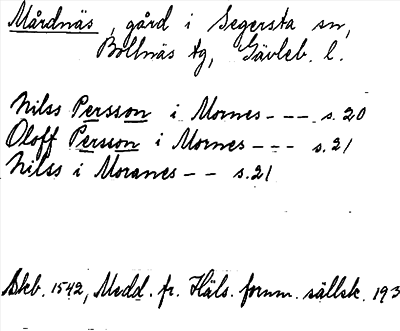 Mårdnäs, gård i Segersta sn,
Bollnäs tg, Gävleb. l.
Nilss Persson i Mornes --- s. 20
Oloff Persson i Mornes --- s. 21
Nilss i Moranes -- s. 21
Skb. 1542, Medd. fr. Häls. fornm. sällsk. 193